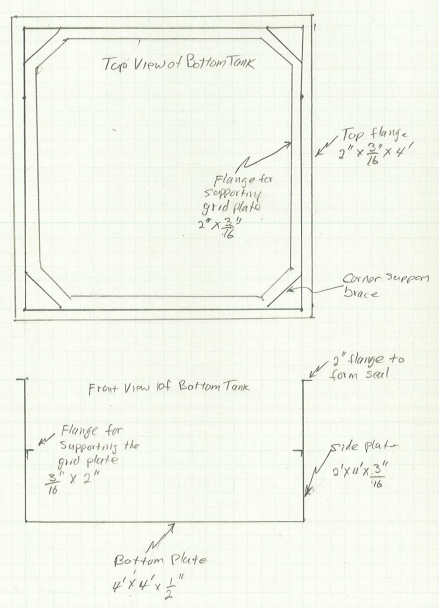 Top View of Bottom Tank
Top flange
2" x 3/16" x 4'
Flange for
supporting
grid plate
2" x 3/16"
Corner Support
brace
2" flange to
form seal
Front View of Bottom Tank
Flange for
Supporting the
grid plate
3/16" x 2"
side plate
2' x 4' x 3/16"
Bottom Plate
4' x 4' x 1/2"